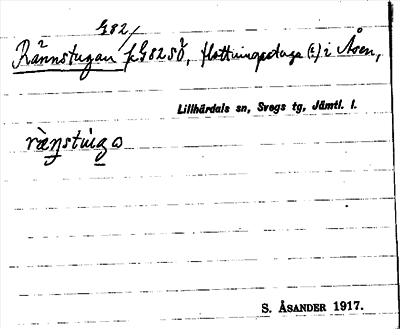 G82/
Rännstugan fG82SÖ, flottningsstuga (t) i Åsen,
Lillhärdals sn, Svegs tg, Jämtl. l.
S. ÅSANDER 1917.